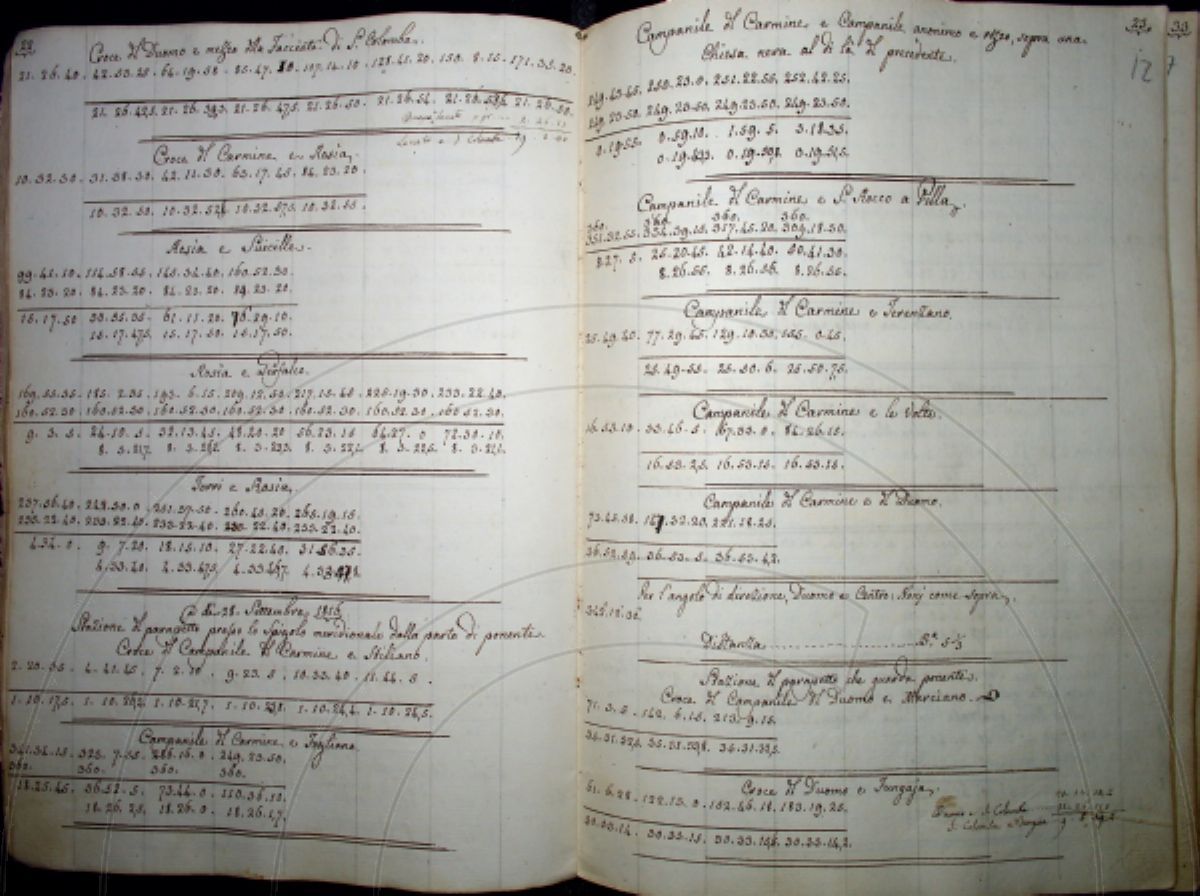 22.
Croce del Duomo e mezzo della Facciata di S. Colomba.
21. 26. 40. 42. 53. 25. 64. 19. 58. 85. 47. 107. 14. 10. 128. 41. 20. 150. 8. 15. 171. 35. 20.
21. 26. 42,5. 21. 26. 39,3. 21. 26. 47,5. 21. 26. 50. 21. 26. 54. 21. 26. 21. 26. 50.
Croce del Carmine e Rosia.
10. 32. 30. 31. 38. 30. 42. 11. 30. 63. 17. 45. 84. 23. 20.
10. 32. 50. 10. 32. 10. 32. 57,5. 10. 32. 55.
Rosia e Suicille.
99. 41. 10. 114. 58. 55. 145. 34. 40. 160. 52. 30.
84. 23. 20. 84. 23. 20. 84. 23. 20. 84. 23. 20.
15. 17. 50 30. 35. 35. 61. 11. 20. 76. 29. 10.
15. 17. 47,5. 15. 17. 50. 15. 17. 50.
Rosia e
169. 55. 35. 185. 2. 35. 193. 6. 15. 209. 12. 50. 217. 15. 45. 225. 19. 30. 233. 22. 40.
160. 52. 30. 160. 52. 30. 160. 52. 30. 160. 52. 30. 160. 52. 30. 160. 52. 30. 160. 52. 30.
9. 3. 5. 24. 10. 5. 32. 13. 45. 48. 20. 20 56. 23. 15 64. 27. 0 72. 30. 10.
Torri e Rosia.
237. 56. 40. 242. 30. 0. 251. 37. 50. 260. 45. 20. 265. 19. 15.
233. 22. 40. 233. 22. 40. 233. 22. 40. 233. 22. 40. 233. 22. 40.
4. 34. 0. 9. 7. 20. 18. 15. 10. 27. 22. 40. 31. 56. 35.
4. 33. 40. 4. 33. 47,5. 4. 33.
a di 28. Settembre 1816.
Stazione del parapetto presso lo Spigolo meridionale dalla parte di ponente.
Croce del Campanile del Carmine e Stiliano.
2. 20. 35. 4. 41. 45. 7. 2. 10. 9. 23. 5. 10. 33. 40. 11. 44. 5.
1. 10. 17,5. 1. 10. 1. 10. 21,7. 1. 10. 1. 10. 24,4. 1. 10. 24,5.
Campanile del Carmine e Fogliano
341. 34. 15. 323. 7. 55. 286. 16. 0. 249. 23. 50.
360. 360. 360. 360.
18. 25. 45. 36. 52. 5. 73. 44. 0. 110. 36. 10.
18. 26. 2,5. 18. 26. 0. 18. 26. 1,7.
23. 33
127
Campanile del Carmine e Campanile anonimo e rozzo, sopra una
Chiesa nera al di là del precedente.
249. 43. 45. 250. 23. 0. 251. 22. 55. 252. 42. 25.
249. 23. 50. 249. 23. 50. 249. 23. 50. 249. 23. 50.
0. 19. 55. 0. 59. 10. 1. 59. 5. 3. 18. 35.
Campanile del Carmine e S. Rocco a Pilla.
360. 360. 360. 360.
351. 32. 55. 334. 39. 15. 317. 45. 20. 309. 18. 30.
8. 27. 5. 25. 20. 45. 42. 14. 40. 50. 41. 30.
8. 26. 55. 8. 26. 56. 8. 26. 55.
Campanile del Carmine e Terenzano.
25. 49. 40. 77. 29. 45. 129. 10. 35. 155. 0. 45.
25. 49. 55. 25. 50. 6. 25. 50. 7,5.
Campanile del Carmine e le Volte.
16. 53. 10. 33. 46. 5. 67. 33. 0. 84. 26. 15.
16. 53. 2,5. 16. 53. 15. 16. 53. 15.
Campanile del Carmine e del Duomo.
73. 45. 58. 147. 32. 20. 221. 18. 25.
36. 52. 59. 36. 53. 5. 36. 53. 4,2.
Per l'angolo di direzione, Duomo e Centro: Nonj come sopra.
Distanza
Stazione del parapetto che guarda ponente.
Croce del Campanile del Duomo e Marciano.
71. 3. 5. 142. 6. 15. 213. 9. 15.
35. 31. 32,5. 35. 31. 33,8. 35. 31. 32,5.
Croce del Duomo e Fungaja.
61. 6. 28. 122. 13. 0. 152. 46. 18. 183. 19. 25.
30. 33. 14. 30. 33. 15. 30. 33. 15,6. 30. 33. 14,2.
Duomo e S. Colomba
S. Colomba e Fungaja